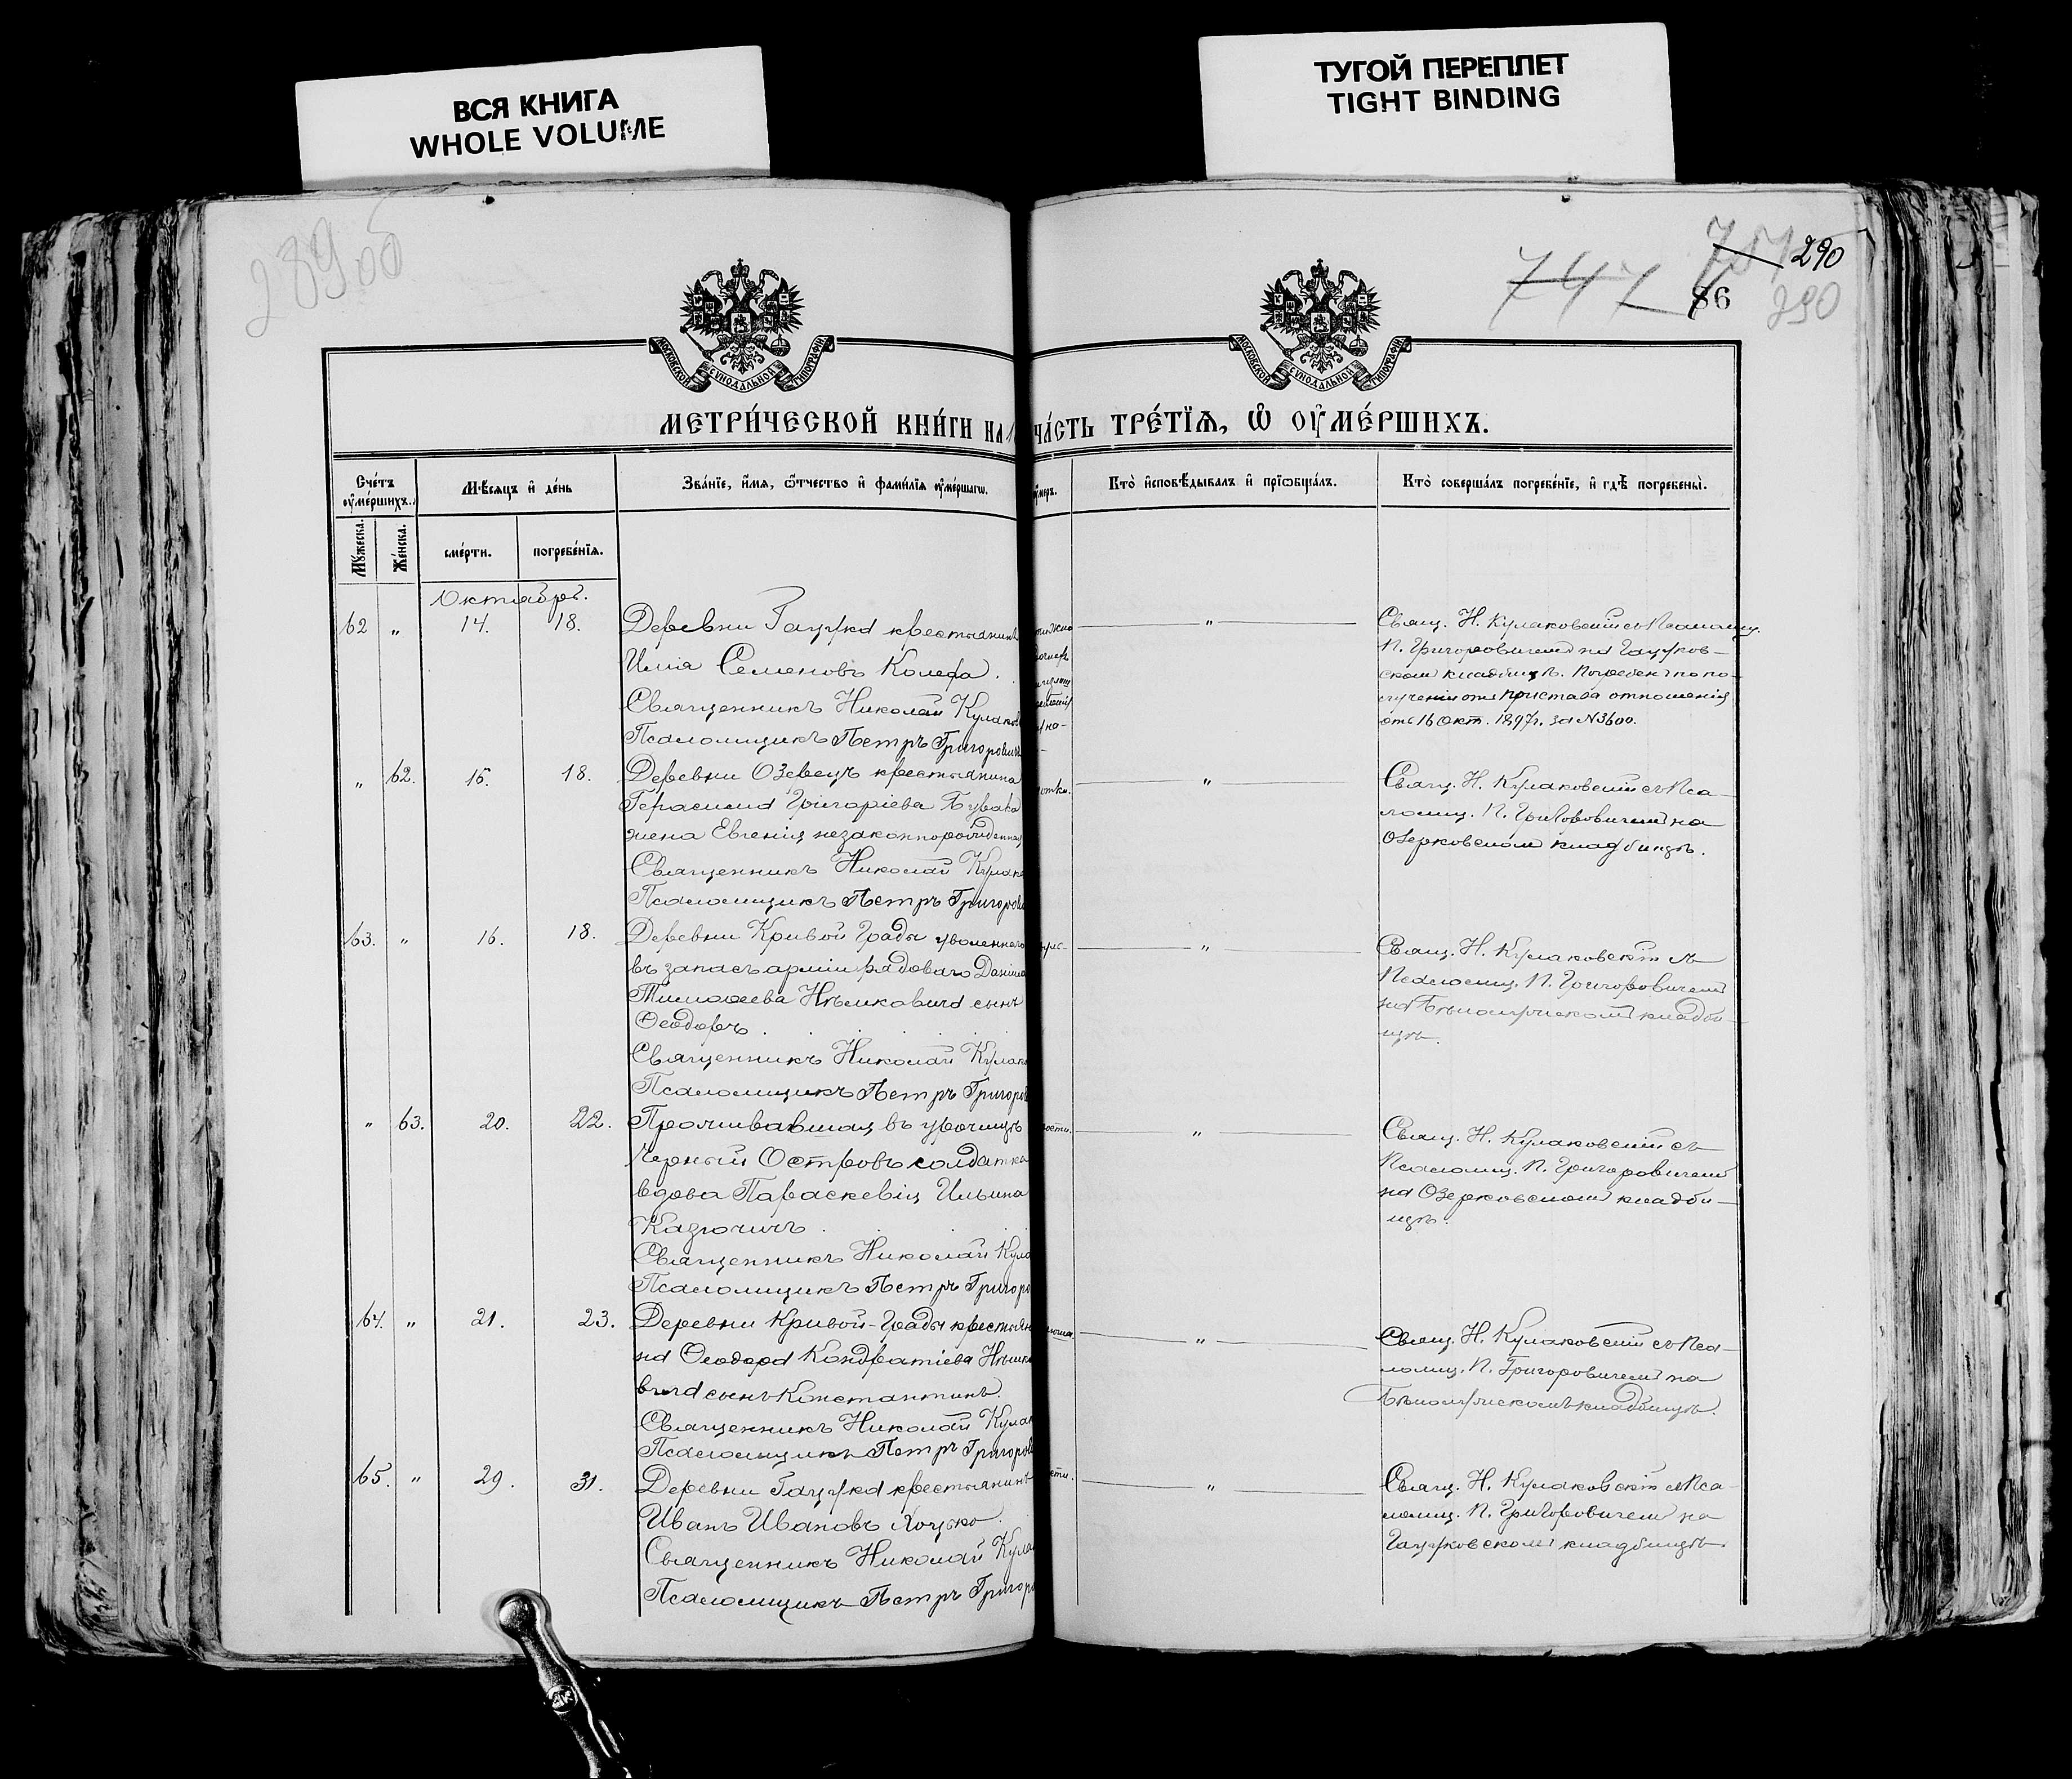 ВСЯ КНИГА
WHOLE VOLUME
ТУГОЙ ПЕРЕПЛЕТ
TIGHT BINDING
289об
747
290
86
290
МОСКОВСКОЙ СѴНОДАЛЬНОЙ ТИПОГРАФІИ
МОСКОВСКОЙ СѴНОДАЛЬНОЙ ТИПОГРАФІИ
МЕТРИ́ЧЕСКОЙ КНИ́ГИ НА
ЧА́СТЬ ТРЕ́ТЇѦ, Ѡ҆ ОУ҆МЕ́РШИХЪ.
Сче́тъ оу҆ме́ршихъ.
Мѣ́сяцъ и҆ де́нь
Зва́нїе, и҆́мѧ, ѻ҆́тчество и҆ фами́лїѧ оу҆ме́ршагѡ.
оу҆́меръ.
Кто̀ и҆сповѣ́дывалъ и҆ прїѡбща́лъ.
Кто̀ соверша́лъ погребе́нїе, и҆ гдѣ̀ погребены̀.
Мꙋ́жеска.
Же́нска.
сме́рти.
погребе́нїѧ.
Октябрь.
62 „ 14. 18. Деревни Гацука крестьянинъ
Илія Семеновъ Коледа.
Священникъ Николай Кулаков
Псаломщикъ Петръ Григорович
„ Свящ. Н. Кулаковскій съ Псаломщ.
П. Григоровичемъ на Гацуков-
скомъ кладбищѣ. Погребенъ по по-
лученіи отъ пристава отношенія
отъ 16 Окт. 1897г. за №3600.
„ 62. 15. 18. Деревни Озерецъ крестьянина
Герасима Григоріева Бурака
жена Евгенія незаконнорожденная
Священникъ Николай Кулако
Псаломщикъ Петръ Григоров
отки. „ Свящ. Н. Кулаковскій съ Пса-
ломщ. П. Григоровичемъ на
Озерковскомъ кладбищѣ.
63. „ 16. 18. Деревни Кривой Гряды уволеннаго
въ запасъ арміи рядоваго Даніила
Тимофеева Нѣмковича сынъ
Ѳеодоръ
Священникъ Николай Кулако
Псаломщикъ Петръ Григоров
„ Свящ. Н. Кулаковскій съ
Псаломщ. П. Григоровичемъ
на кладби-
щѣ.
„ 63. 20. 22. Проживавшая въ урочищѣ
Черный Островъ солдатка
вдова Параскевія Ильина
Казючичъ
Священникъ Николай Кула
Псаломщикъ Петръ Григоро
ости. „ Свящ. Н. Кулаковскій съ
Псаломщ. П. Григоровичемъ
на Озерковскомъ кладби-
щѣ.
64. „ 21. 23. Деревни Кривой-Гряды крестьяни
на Ѳеодора Кондратіева Нѣмко
вича сынъ Константинъ.
Священникъ Николай Кулак
Псаломщикъ Петръ Григоров
„ Свящ. Н. Кулаковскій съ Пса-
ломщ. П. Григоровичемъ на
кладбищѣ.
65. „ 29. 31. Деревни Гацука крестьянинъ
Иванъ Ивановъ Хоцько
Священникъ Николай Кула
Псаломщикъ Петръ Григоро
сти. „ Свящ. Н. Кулаковскій съ Пса-
ломщ. П. Григоровичемъ на
Гацуковскомъ кладбищѣ